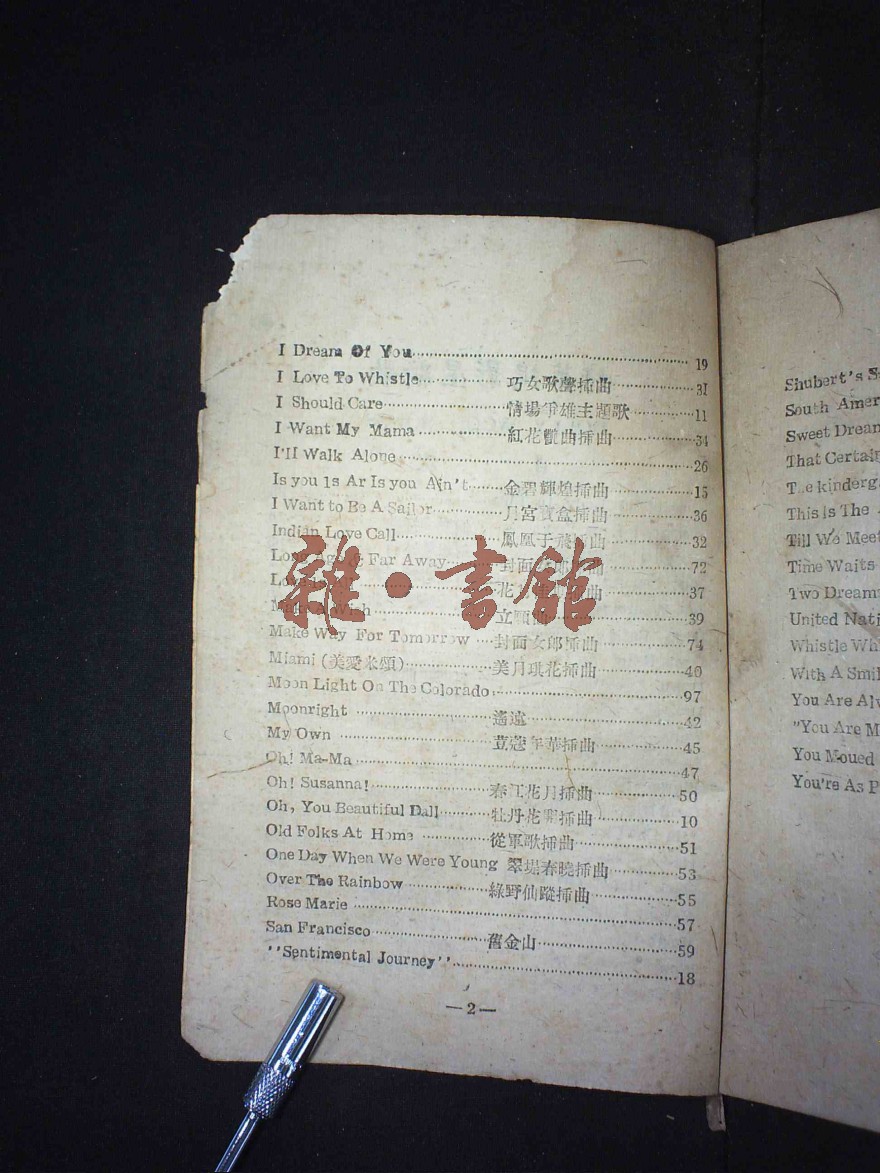 I Dream Of You 19
I Love To Whistle 巧女歌聲插曲 31
I Should Care 情場爭雄主題歌 11
I Want My Mama 紅花艷曲插曲 34
I'll Walk Alone 26
Is you Is Ar Is you Ain't 金碧輝煌插曲 15
I Want to Be A Sailor 月宮寶盒插曲 36
Indian Love Call 鳳凰于飛插曲 32
Far Away 封面 72
花 37
Make A Wish 39
Make Way For Tomorrow 封面女郎插曲 74
Miami (美愛米頌) 美月琪花插曲 40
Moon Light On The Colorado 97
Moonright 遙遠 42
My Own 荳蔻年華插曲 45
Oh! Ma-Ma 47
Oh! Susanna! 春江花月插曲 50
Oh, You Beautiful Dall 牡丹花開插曲 10
Old Folks At Home 從軍歌插曲 51
One Day When We Were Young 翠堤春曉插曲 53
Over The Rainbow 綠野仙蹤插曲 55
Rose Marie 57
San Francisco 舊金山 59
''Sentimental Journey'' 18
—2—
雜·書館
Shubert's
South Amer
Sweet Dream
That Certain
T.e kinderg
This is The
Till We Meet
Time Waits
Two Dream
United Nati
Whistle Whi
With A Smil
You Are Alw
"You Are M
You Moued
You're As P